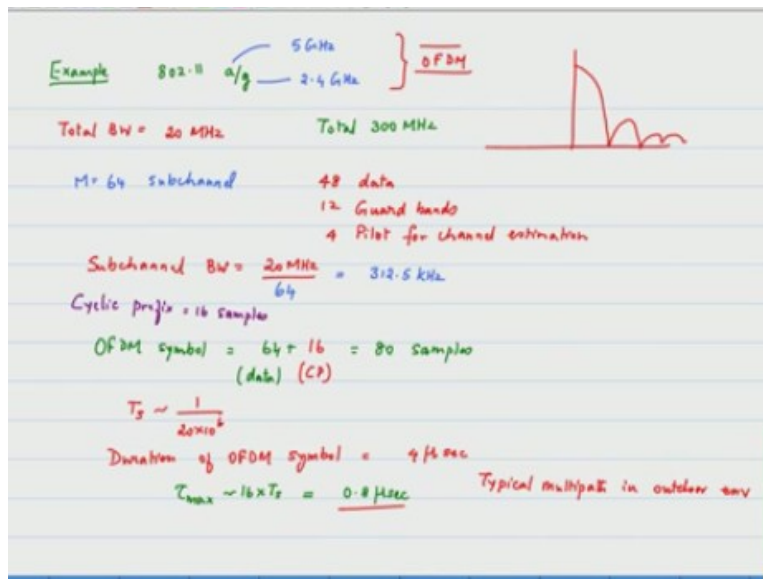 5 GHz
Example 802.11 a/g OFDM
2.4 GHz
Total BW = 20 MHz Total 300 MHz
M = 64 subchannel 48 data
12 Guard bands
4 Pilot for channel estimation
Subchannel BW = 20 MHz / 64 = 312.5 kHz
Cyclic prefix = 16 samples
OFDM symbol = 64 + 16 = 80 samples
(data) (CP)
Ts ~ 1 / 20×10⁶
Duration of OFDM symbol = 4 μsec
τmax ~ 16×Ts = 0.8 μsec Typical multipath in outdoor env